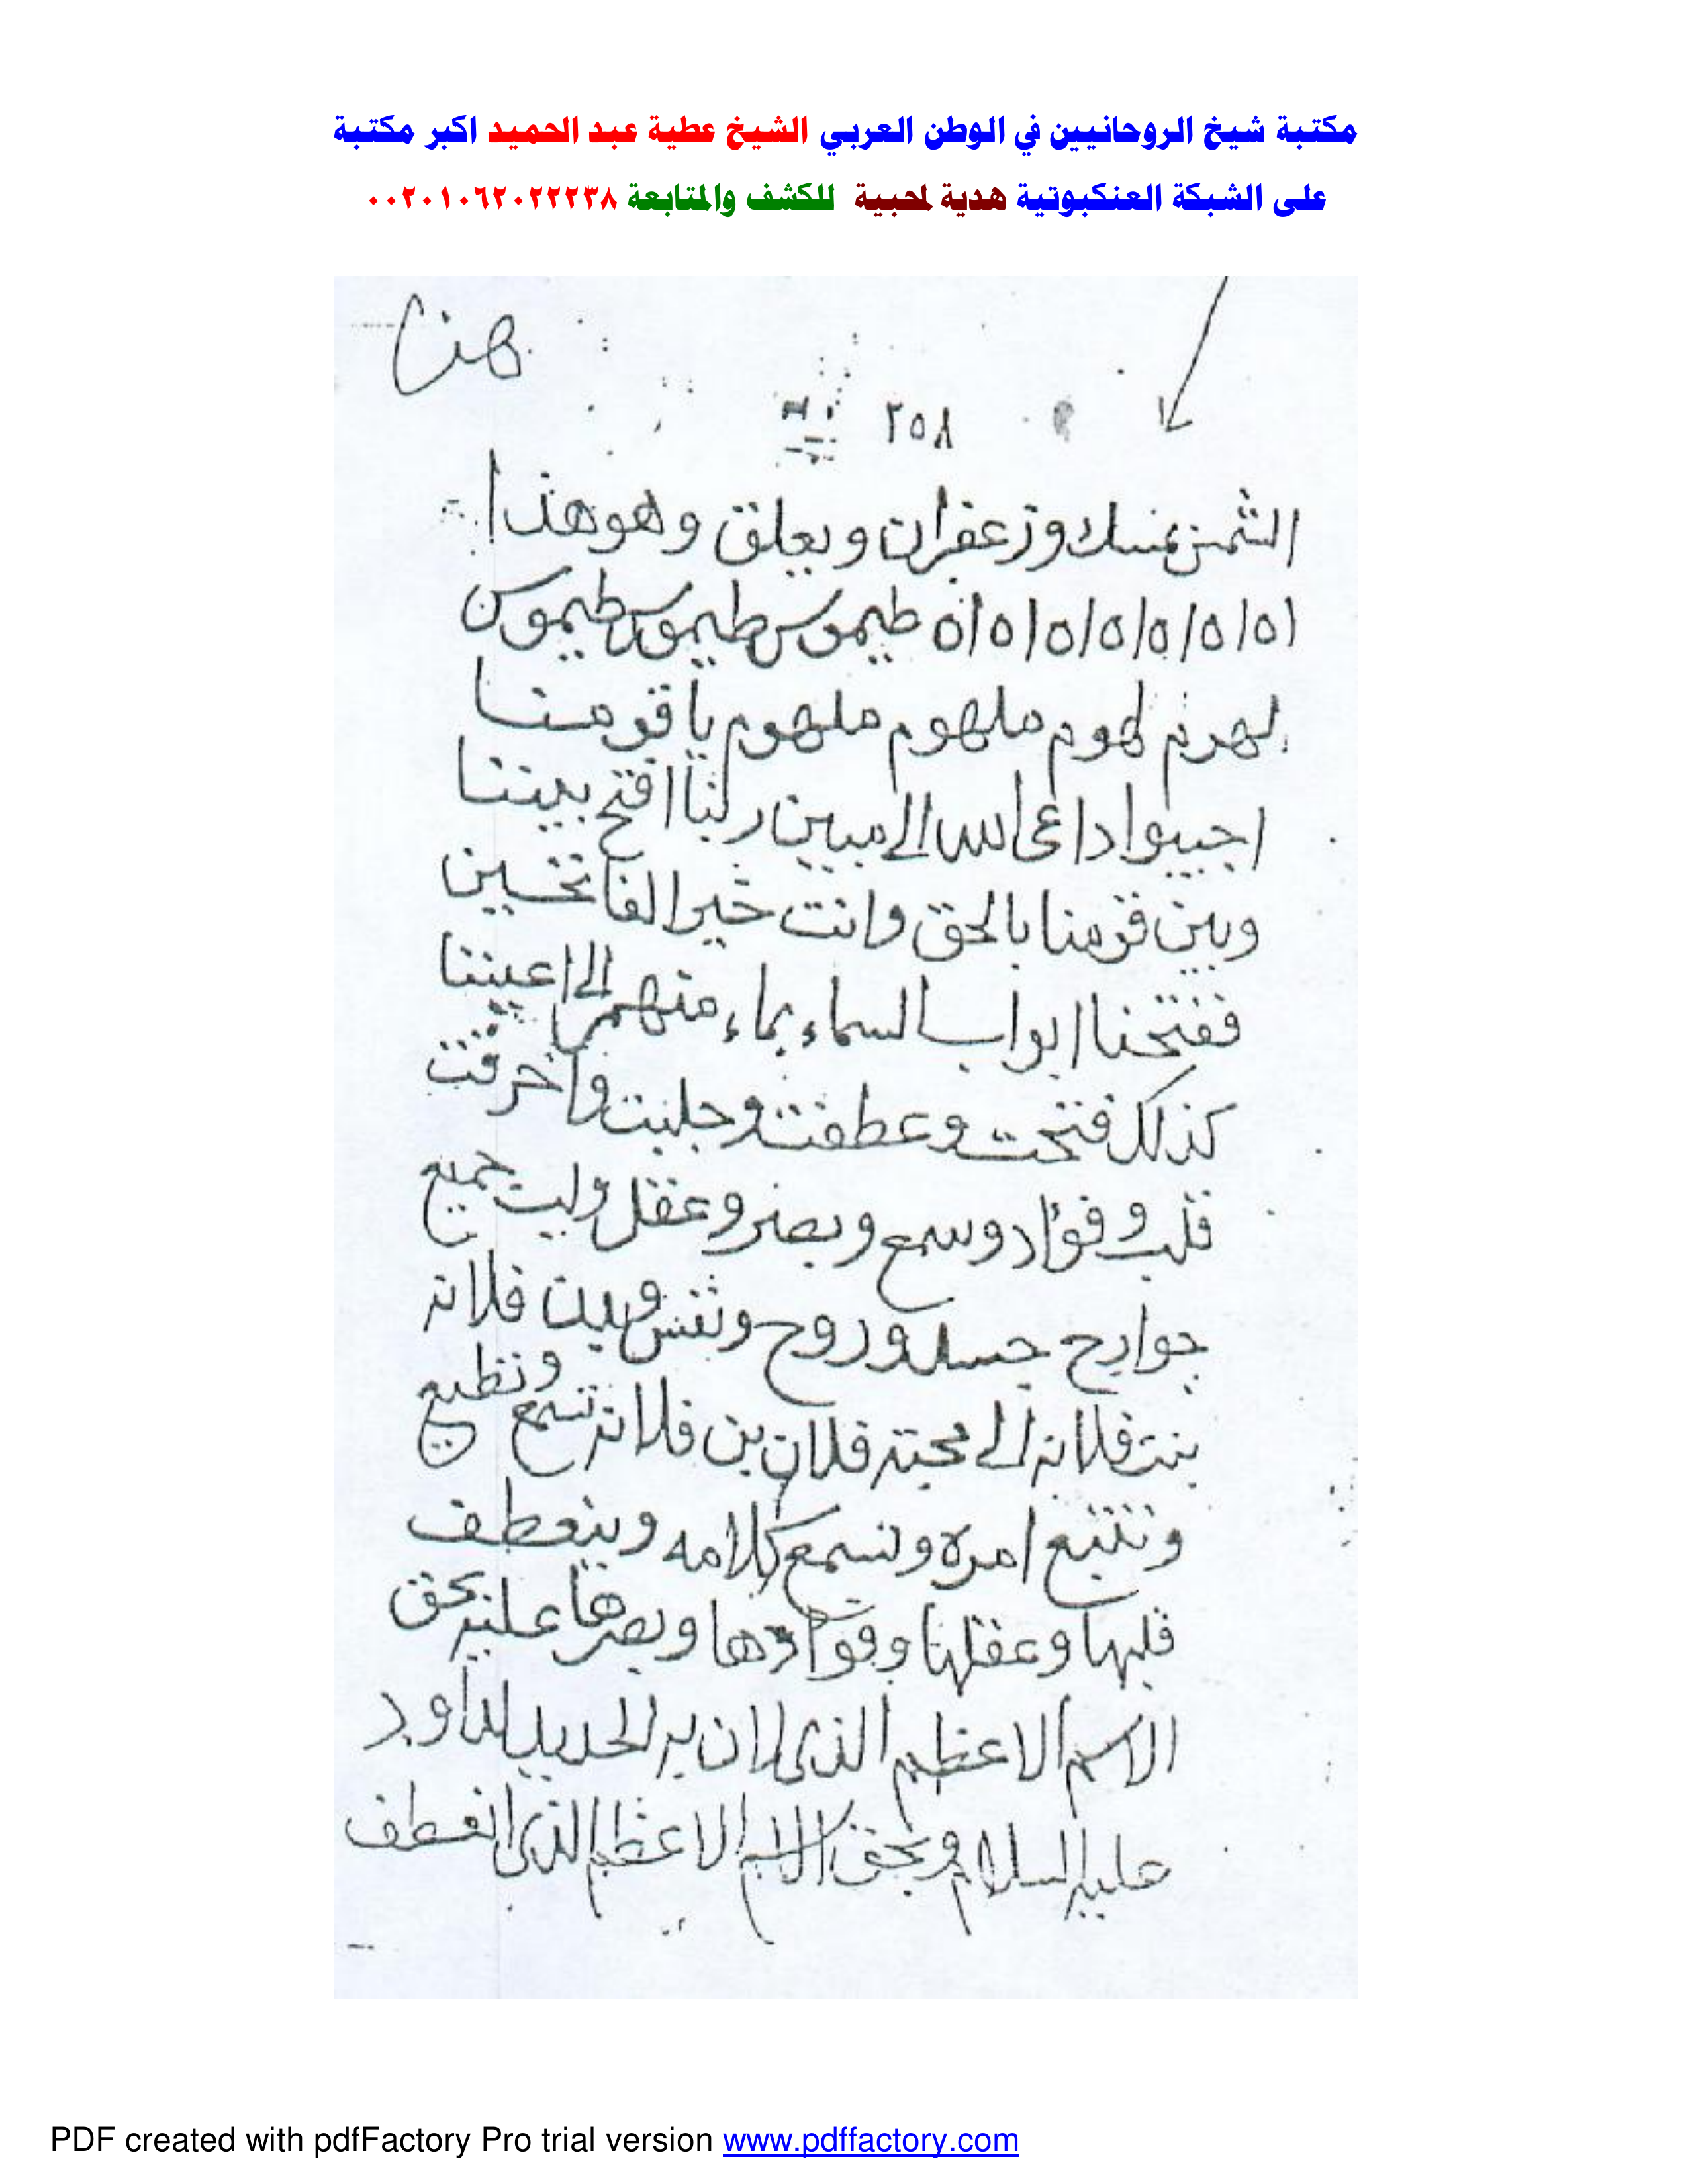 مكتبة شيخ الروحانيين في الوطن العربي الشيخ عطية عبد الحميد اكبر مكتبة
على الشبكة العنكبوتية هدية لمحبية للكشف والمتابعة ٠٠٢٠١٠٦٢٠٢٢٢٣٨
هنا
٢٥٨
الثمن بمسك وزعفران ويعلق وهو هذا
١٥١٥١٥١٥١٥١٥١٥١٥ طيموس طيموس طيموس
لهوم لهوم ملهوم ملهوم يا قومنا
اجيبوا داعى الله الى مبين ربنا افتح بيننا
وبين قومنا بالحق وانت خير الفاتحين
ففتحنا ابواب السماء بماء منهمر الى اعيننا
كذلك فتحت وعطفت وجلبت واحرقت
قلب وفؤاد وسمع وبصر وعقل ولب جميع
جوارح جسد وروح ونفس وبين فلانه
بنت فلانه الى محبة فلان بن فلانه تسمع وتطيع
وتتبع امره وتسمع كلامه وينعطف
قلبها وعقلها وفوادها وبصرها عليه بحق
الاسم الاعظم الذى لان به الحديد لداود
عليه السلام وبحق الاسم الاعظم الذى انعطف
PDF created with pdfFactory Pro trial version www.pdffactory.com